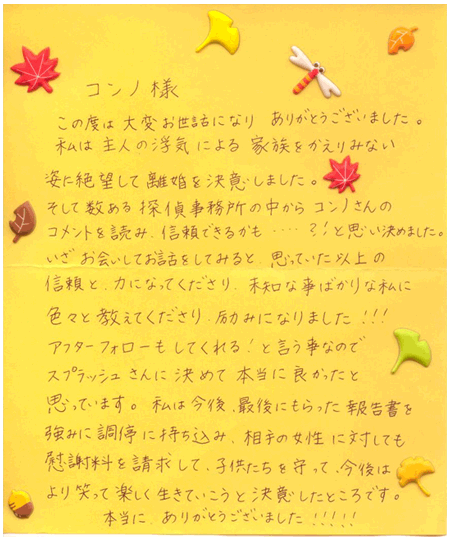 コンノ様
この度は大変お世話になり ありがとうございました。
私は主人の浮気による家族をかえりみない
姿に絶望して離婚を決意しました。
そして数ある探偵事務所の中からコンノさんの
コメントを読み、信頼できるかも……?!と思い決めました。
いざお会いしてお話をしてみると、思っていた以上の
信頼と、力になってくださり、未知な事ばかりな私に
色々と教えてくださり、励みになりました!!!
アフターフォローもしてくれる!と言う事なので
スプラッシュさんに決めて本当に良かったと
思っています。私は今後、最後にもらった報告書を
強みに調停に持ち込み、相手の女性に対しても
慰謝料を請求して、子供たちを守って、今後は
より笑って楽しく生きていこうと決意したところです。
本当に、ありがとうございました!!!!!